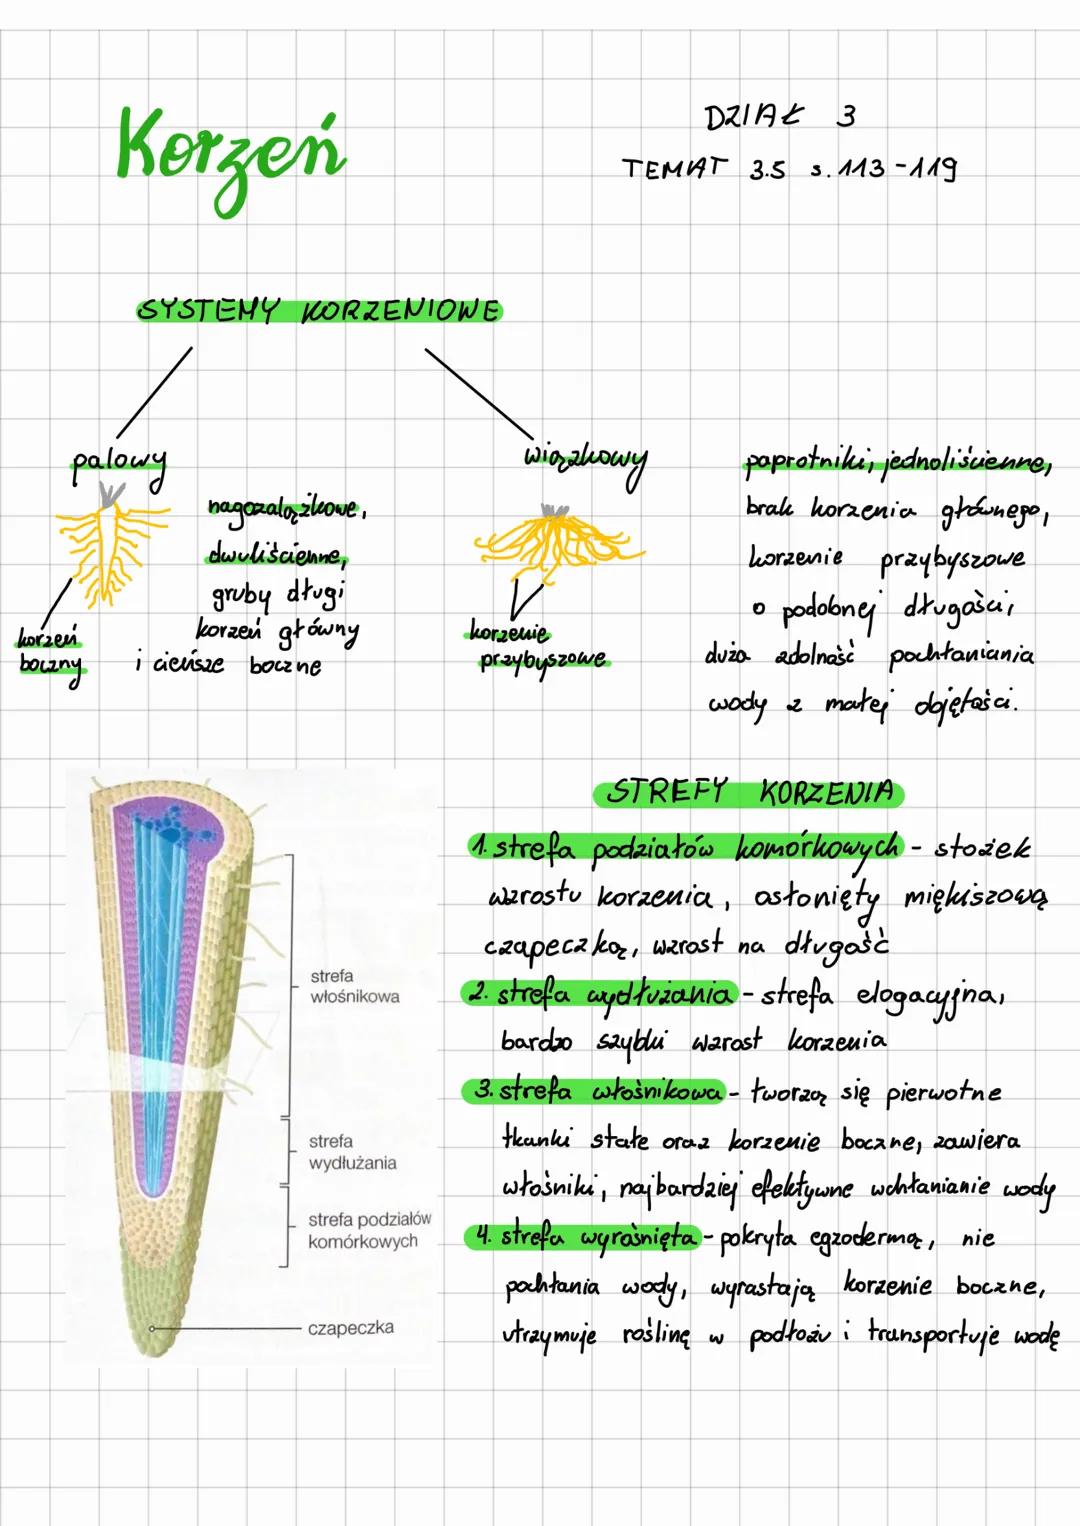 Korzeń
DZIAŁ 3
TEMAT 3.5 s. 113-119
SYSTEMY KORZENIOWE
palowy
nagozalążkowe,
dwuliścienne,
gruby długi
korzeń główny
i cieńsze boczne
korzeń
boczny
wiązkowy
korzenie
przybyszowe
paprotniki, jednoliścienne,
brak korzenia głównego,
korzenie przybyszowe
o podobnej długości,
duża zdolność pochłaniania
wody z małej objętości.
strefa
włośnikowa
strefa
wydłużania
strefa podziałów
komórkowych
czapeczka
STREFY KORZENIA
1. strefa podziałów komórkowych - stożek
wzrostu korzenia, osłonięty miękiszową
czapeczką, wzrost na długość
2. strefa wydłużania - strefa elogacyjna,
bardzo szybki wzrost korzenia
3. strefa włośnikowa - tworzą się pierwotne
tkanki stałe oraz korzenie boczne, zawiera
włośniki, najbardziej efektywne wchłanianie wody
4. strefa wyrośnięta - pokryta egzodermą, nie
pochłania wody, wyrastają korzenie boczne,
utrzymuje roślinę w podłożu i transportuje wodę